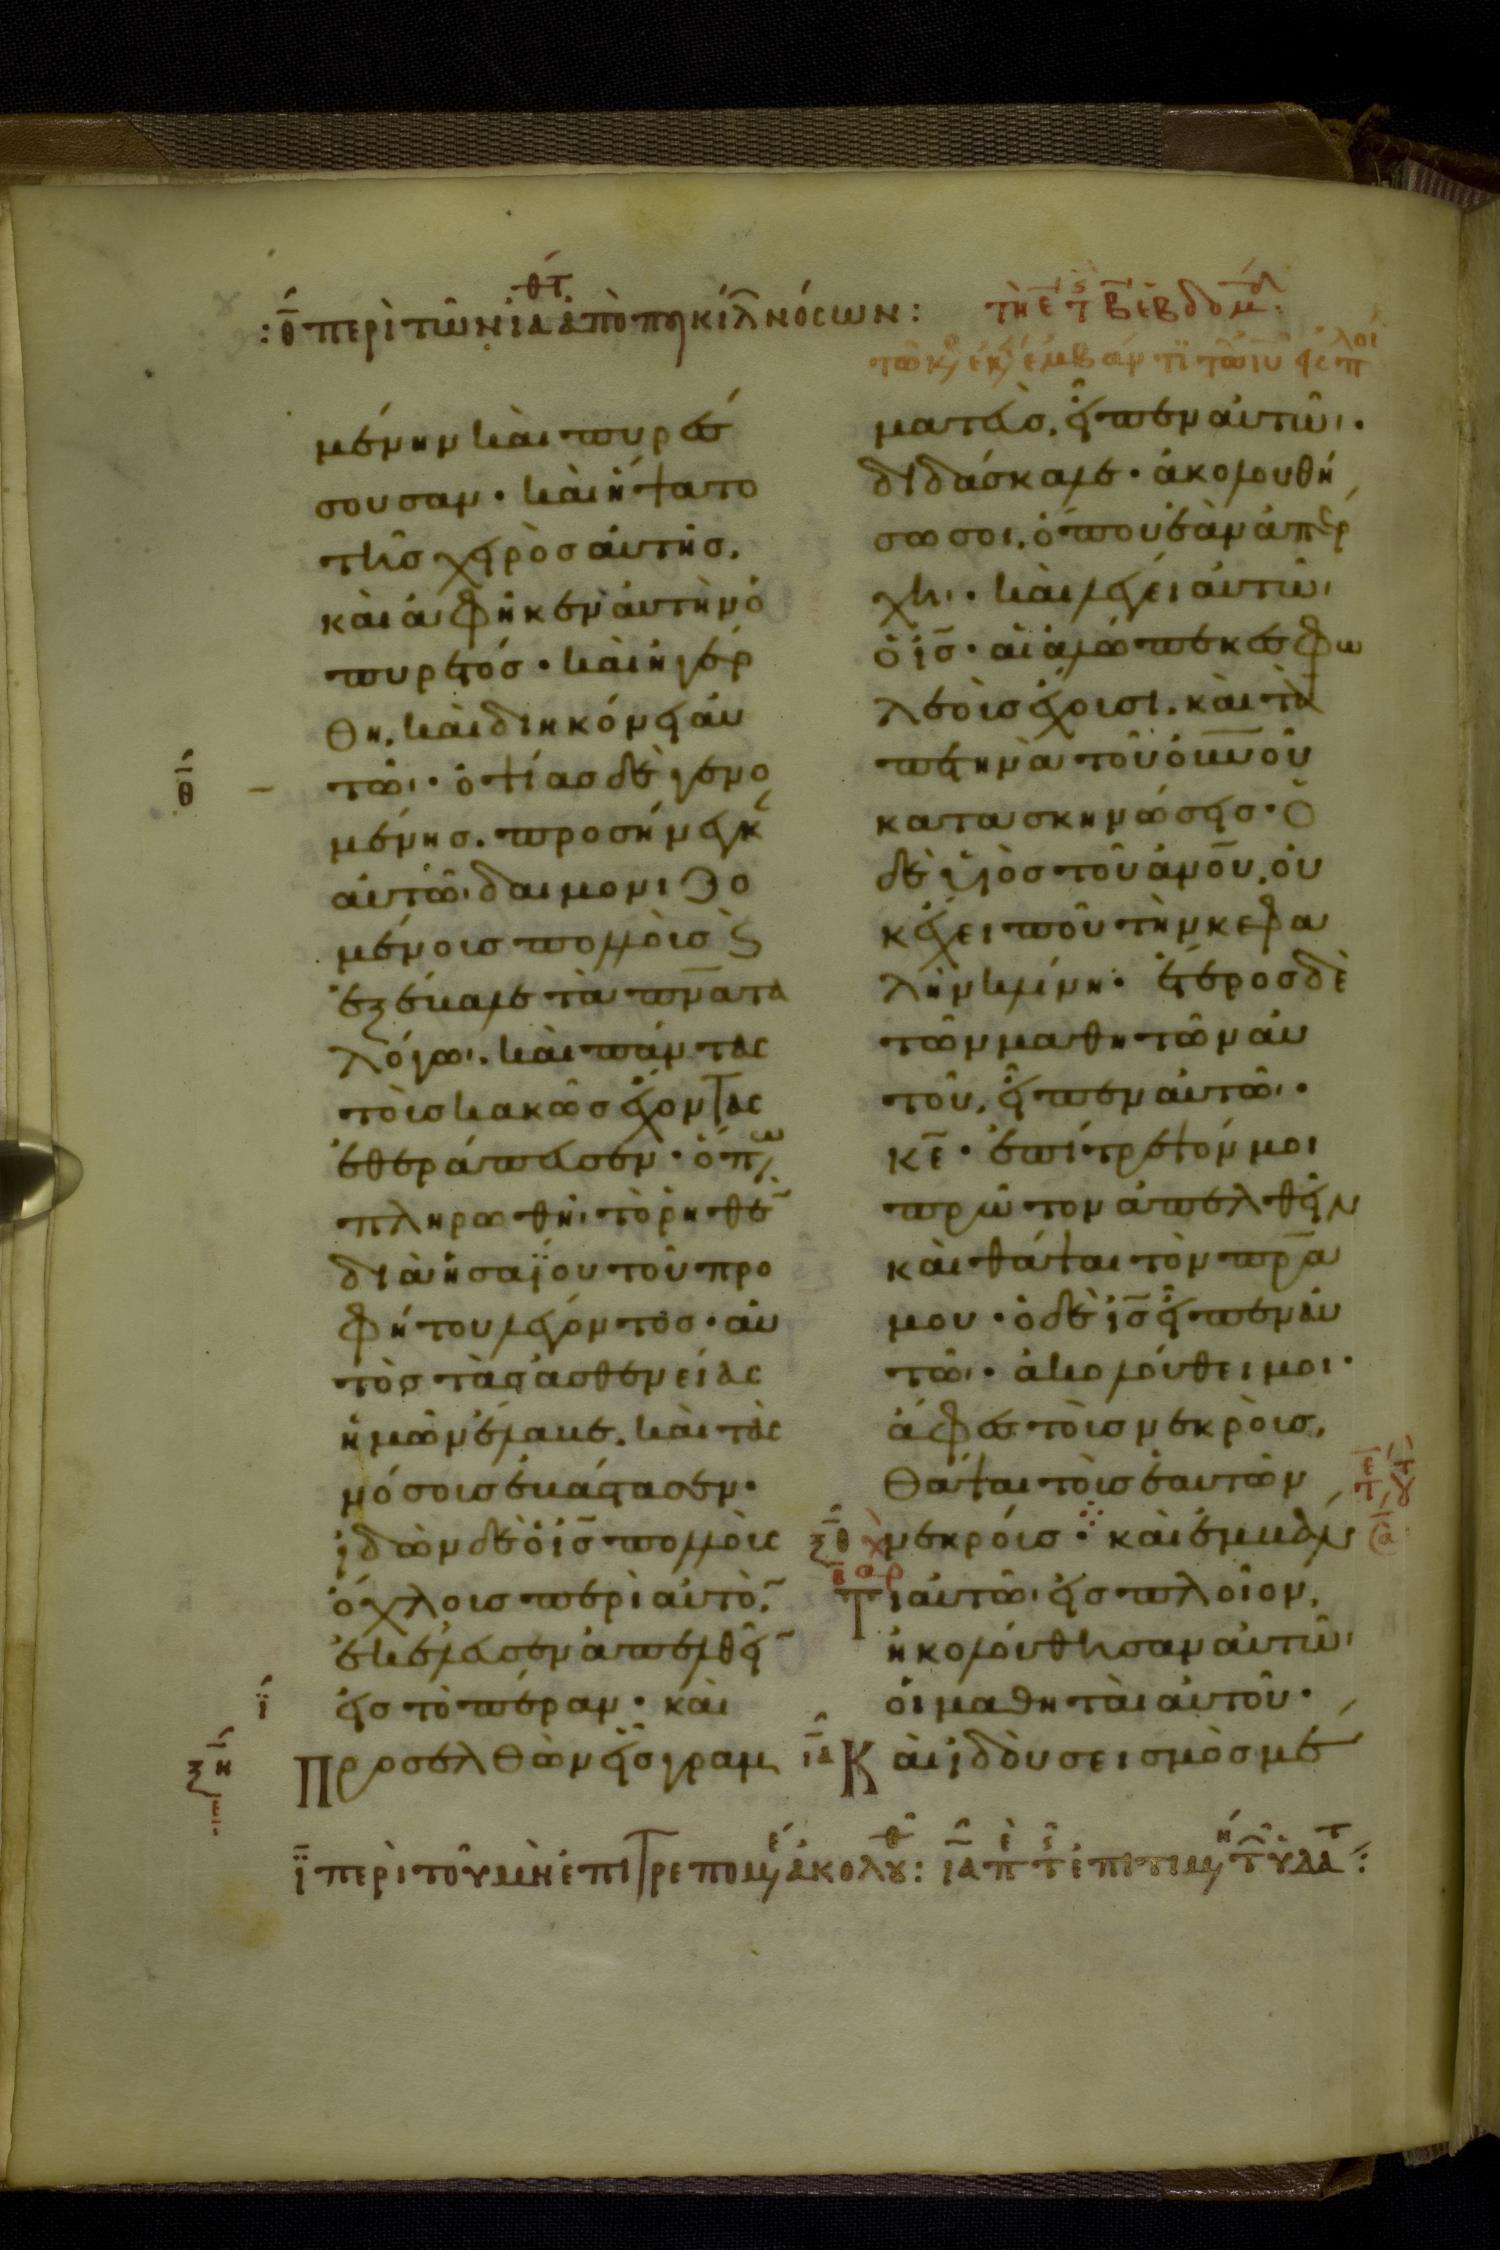 : θ̄ περὶ τῶν ἰαθτ ἀπὸ ποικίλ νόσων :
τῆ ε τ β ἑβδομ
τῶ κ ἐκ ἐμβάντι τῶ ιυ εἰς πλοῖ
μένην καὶ πυρέσ
σουσαν · καὶ ἥψατο
τῆς χειρὸς αὐτῆς.
καὶ ἀφῆκεν αὐτὴν ὁ
πυρετός · καὶ ἠγέρ
θη. καὶ διηκόνει αὐ
θ̄
τῶι · ὀψίας δὲ γενο
μένης. προσήνεγκ
αὐτῶι δαιμονιζο
μένους πολλοὺς ϗ
ἐξέβαλε τὰ πν̄ατα
λόγωι. καὶ πάντας
τοὺς κακῶς ἔχοντας
ἐθεράπευσεν · ὅπως
πληρωθῆι τὸ ῥηθὲ̄
διὰ ἡσαΐου τοῦ προ
φήτου λέγοντος · αὐ
τὸς τὰς ἀσθενείας
ἡμῶν ἔλαβε. καὶ τὰς
νόσους ἐβάστασεν ·
ἰδὼν δὲ ὁ ἰς̄ πολλοὺς
ὄχλους περὶ αὐτὸ̄.
ἐκέλευσεν ἀπελθεῖ̄
ῑ
εἰς τὸ πέραν · καὶ
ξη
ε
Προσελθὼν εἷς γραμ
ματεὺς. εἶπεν αὐτῶι ·
διδάσκαλε · ἀκολουθή
σω σοι. ὅπου ἐὰν ἀπέρ
χηι · καὶ λέγει αὐτῶι
ὁ ἰς̄ · αἱ ἀλώπεκες φω
λεοὺς ἔχουσι. καὶ τὰ
πετεινὰ τοῦ οὐν̄οῦ
κατασκηνώσεις · ὁ
δὲ υἱὸς τοῦ ἀνο̄υ. οὐ
κ ἔχει ποῦ τὴν κεφα
λὴν κλίνη · ἕτερος δὲ
τῶν μαθητῶν αὐ
τοῦ. εἶπεν αὐτῶι ·
κε̄ · ἐπίτρεψόν μοι
πρῶτον ἀπελθεῖν
καὶ θάψαι τὸν πρ̄α
μου · ὁ δὲ ἰς̄ εἶπεν αὐ
τῶι · ἀκολούθει μοι ·
ἄφες τοὺς νεκροὺς.
θάψαι τοὺς ἑαυτῶν
ξθ
β
νεκρούς · καὶ ἐμβάν
Τι αὐτῶι εἰς πλοῖον.
ἠκολούθησαν αὐτῶι
οἱ μαθηταὶ αὐτοῦ ·
ια
Καὶ ἰδοὺ σεισμὸς μέ
ῑ περὶ τοῦ μὴ ἐπιτρεπομε ἀκολουθ : ῑᾱ π τ ἐπιτιμη τ ὑδατ :